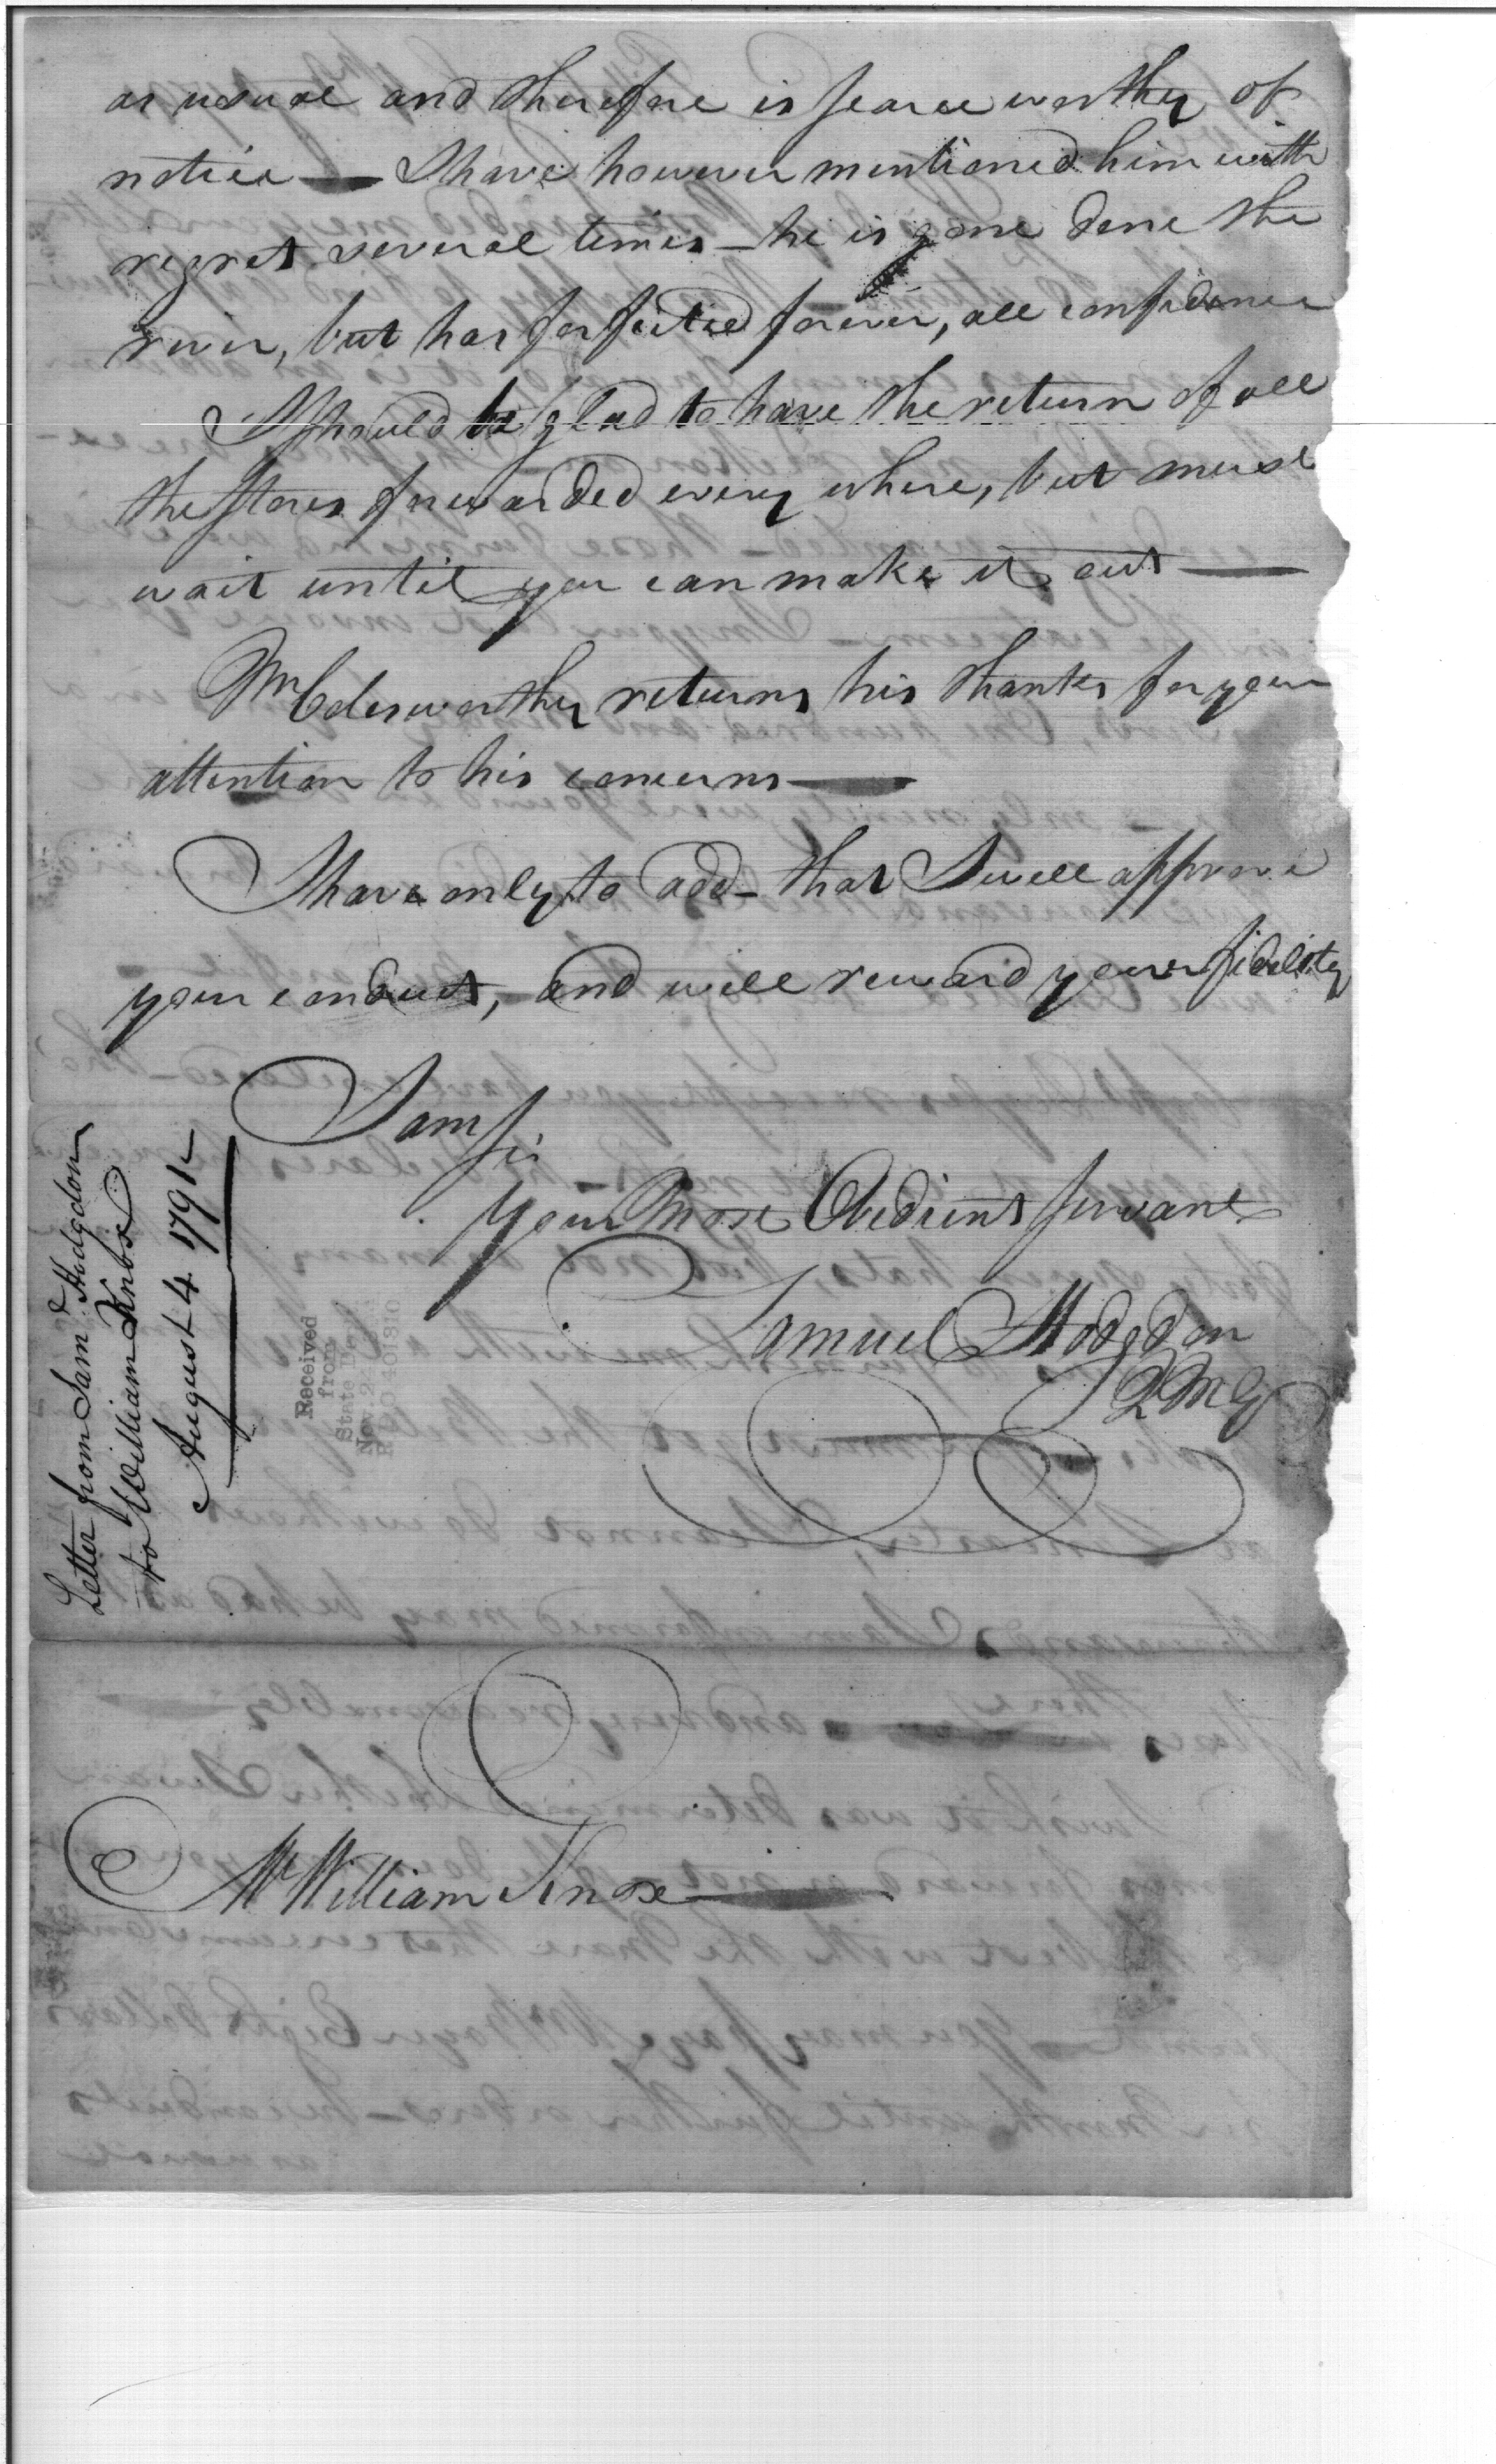 as usual and therefore is scarce worthy of
notice — I have however mentioned him with
regret several times — he is gone done the
river, but has forfeited forever, all confidence
I should be glad to have the return of all
the Stores forwarded every where, but must
wait until you can make it out —
Mr Colesworthy returns his thanks for your
attention to his concerns —
I have only to add — that I well approve
your conduct, — and will reward your fidelity
I am
Sir
Your Most Obedient Servant
Samuel Hodgdon
QMG
Letter from Sam.d Hudgdon
to William Knox
August 4. 1791
Received
from
State Dep
Nov. 2
401810
Mr William Knox —